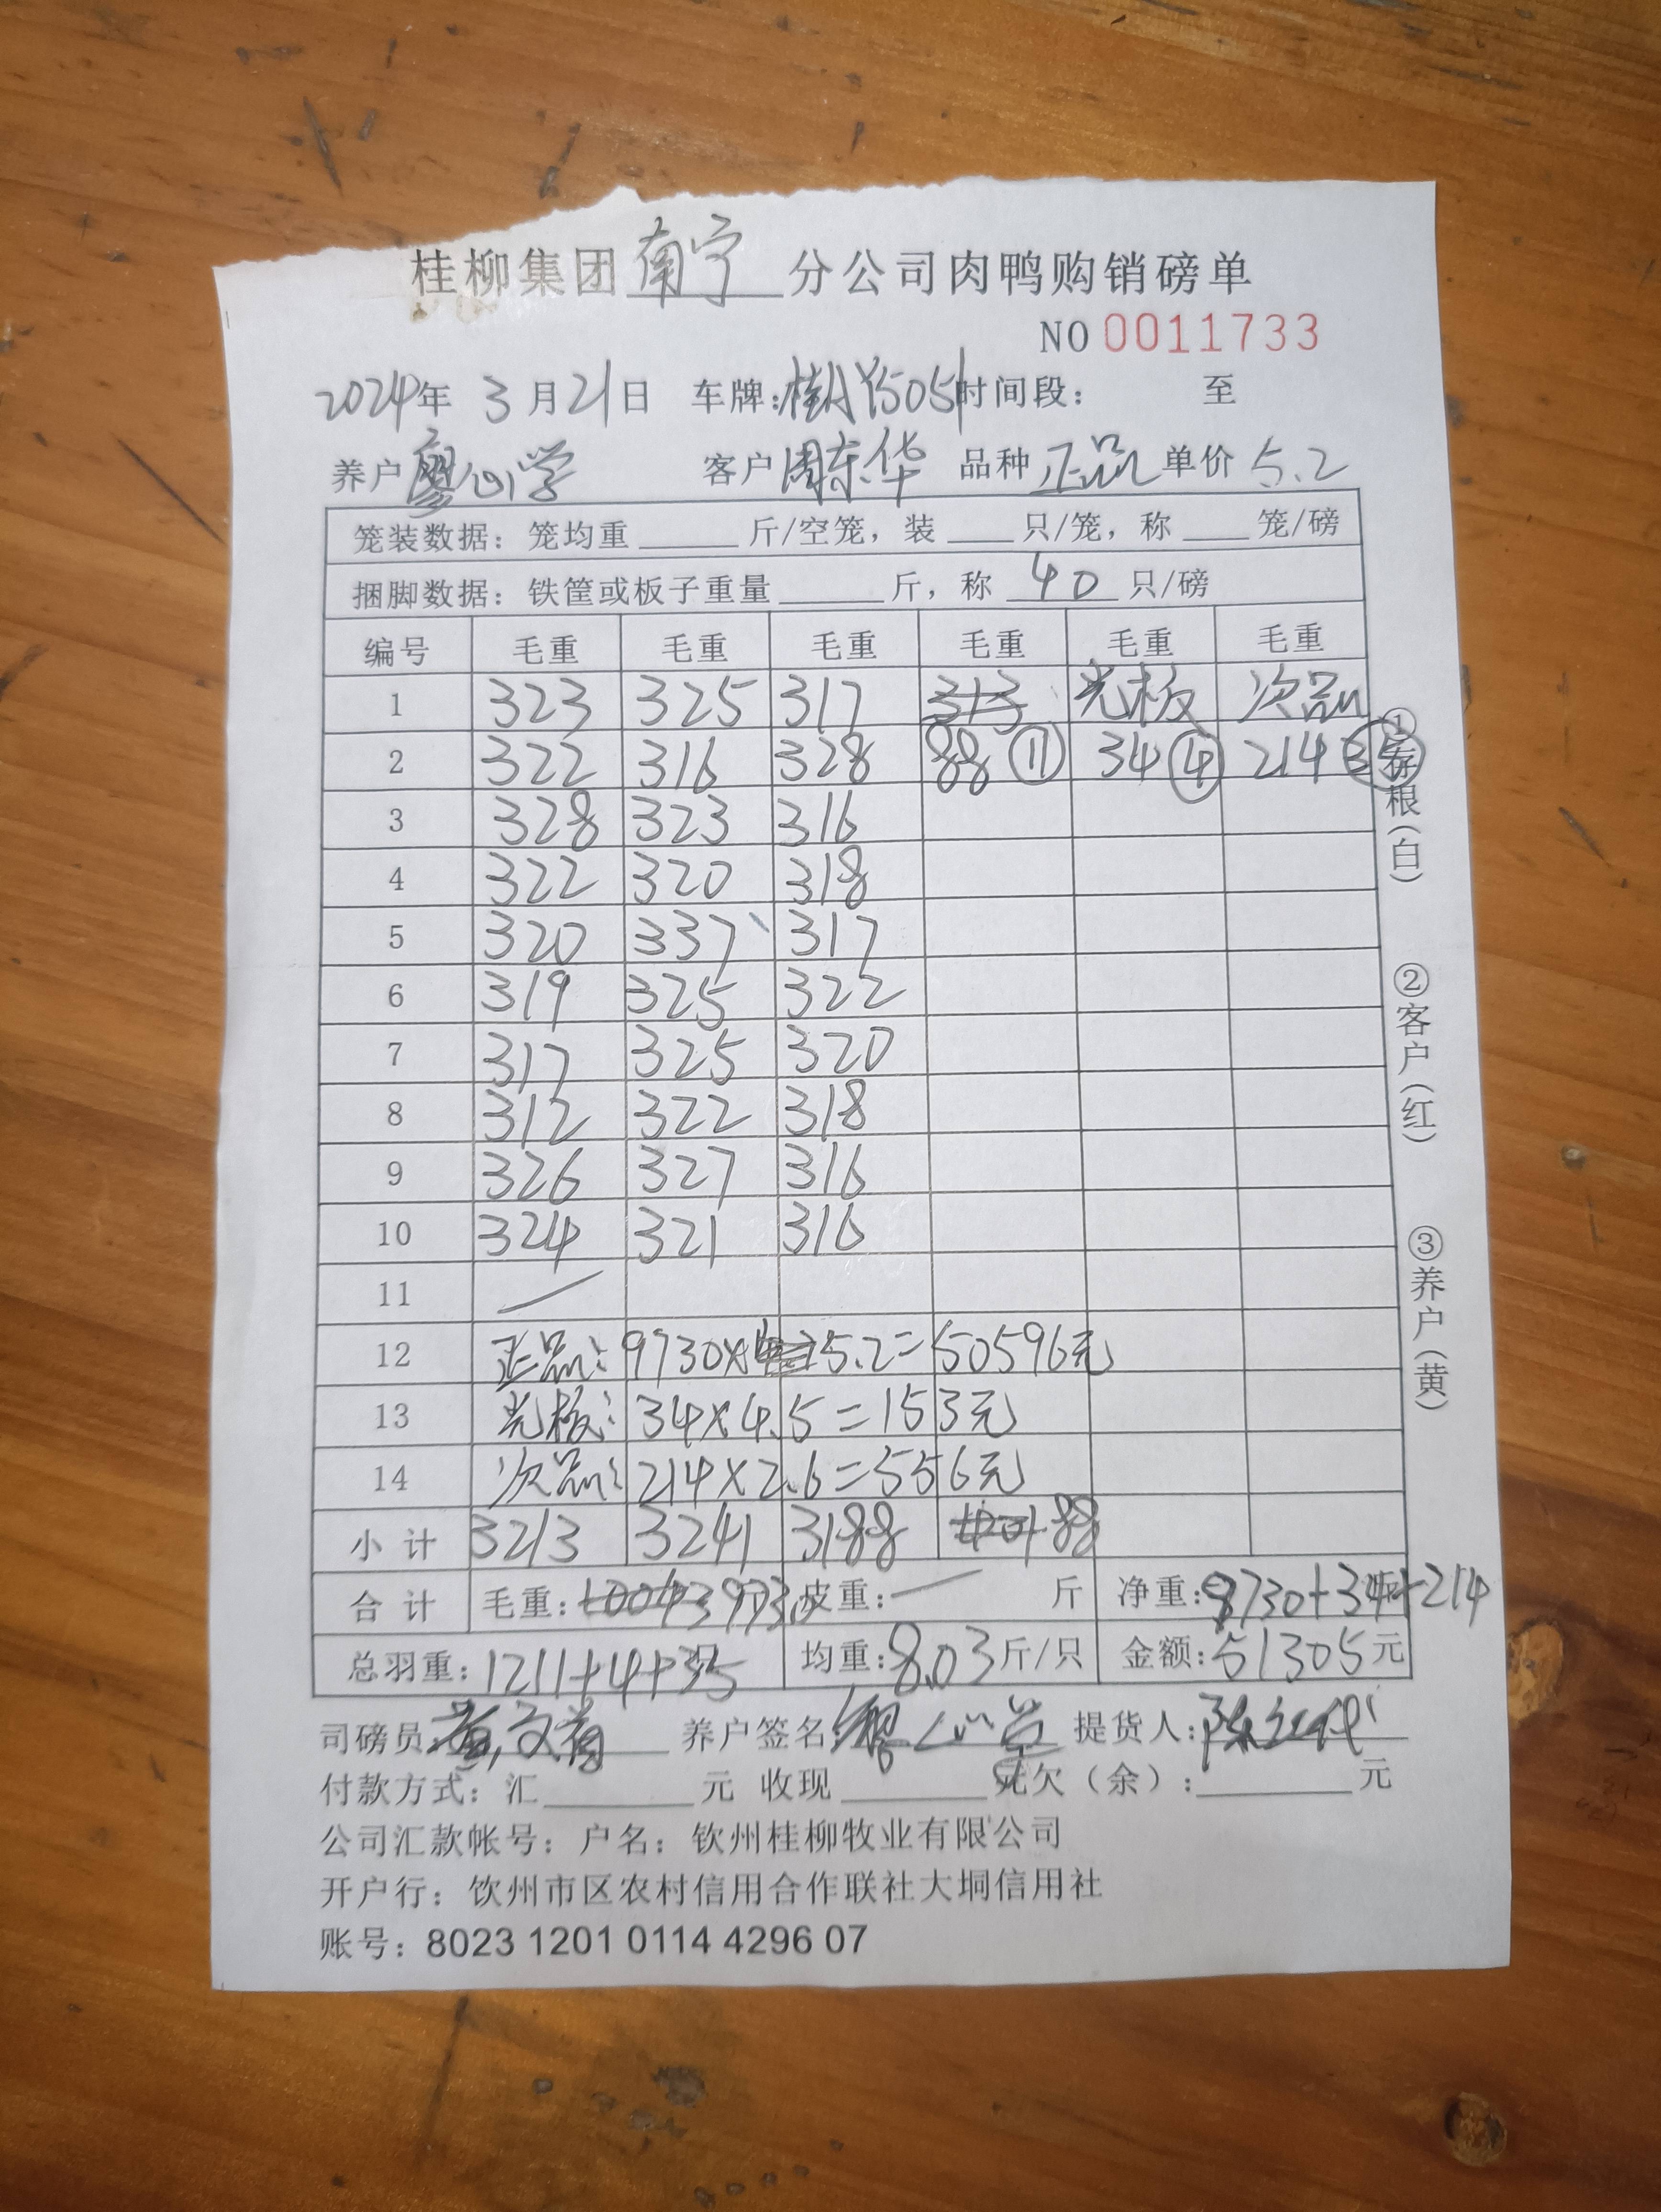 桂柳集团南宁分公司肉鸭购销磅单
NO 0011733
2024年 3月21日 车牌:桂AY5051时间段: 至
养户 廖 学 客户 周东华 品种 正品 单价 5.2
笼装数据: 笼均重 斤/空笼, 装 只/笼, 称 笼/磅
捆脚数据: 铁筐或板子重量 斤, 称 40 只/磅
编号 毛重 毛重 毛重 毛重 毛重 毛重
1 323 325 317 313 光板 次品
2 322 316 328 88 ⑪ 34 ④ 214 35
3 328 323 316
4 322 320 318
5 320 337 317
6 319 325 322
7 317 325 320
8 312 322 318
9 326 327 316
10 324 321 316
11
12 正品: 9730× 5.2=50596元
13 光板: 34×4.5=153元
14 次品: 214×2.6=556元
小计 3213 3241 3188 88
合计 毛重: 9730 皮重: 斤 净重: 9730+34+214
总羽重: 1211+4+35 均重: 8.03斤/只 金额: 51305元
司磅员: 黄文 养户签名: 提货人: 陈
付款方式: 汇 元 收现 元欠(余): 元
公司汇款帐号: 户名: 钦州桂柳牧业有限公司
开户行: 饮州市区农村信用合作联社大垌信用社
账号: 8023 1201 0114 4296 07
①存根(白)
②客户(红)
③养户(黄)